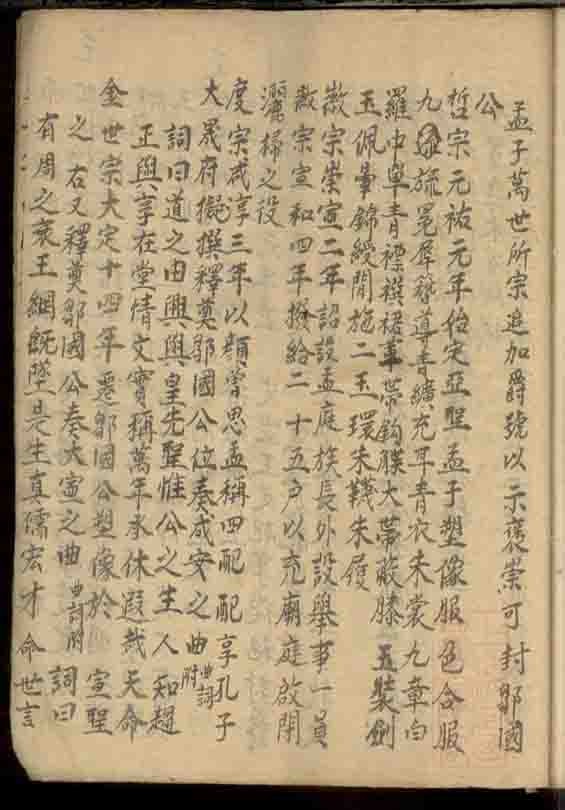 孟子萬世所宗追加爵號以示褒崇可封鄒國
公
哲宗元祐元年始定亞聖孟子塑像服色合服
九旒冕犀簪導青纊充耳青衣朱裳九章白
羅中單青褾襈裙革帶鈎䚢大帶蔽膝玉裝劍
玉佩暈錦綬間施二玉環朱韈朱履
徽宗崇宣二年詔設孟庭族長外設舉事一員
徽宗宣和四年撥給二十五户以充廟庭啟閉
灑掃之役
度宗咸淳三年以顏曾思孟稱四配配享孔子
大晟府擬撰釋奠鄒國公位奏成安之曲曲詞附
詞曰道之由興興皇先聖惟公之生人知趨
正與享在堂情文實稱萬年承休遐哉天命
金世宗大定十四年遷鄒國公塑像於宣聖
之右又釋奠鄒國公奏大寍之曲曲詞附詞曰
有周之衰王綱既墜是生真儒宏才命世言